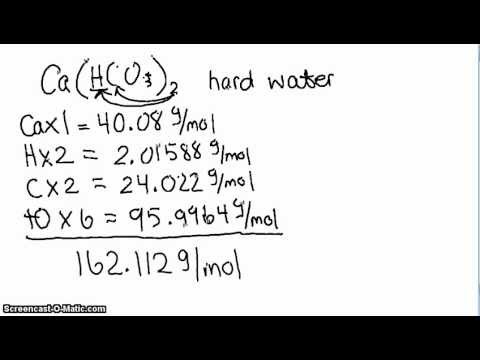 Ca(HCO3)2 hard water
Ca x 1 = 40.08 g/mol
H x 2 = 2.01588 g/mol
C x 2 = 24.022 g/mol
+O x 6 = 95.9964 g/mol
162.112 g/mol
Screencast-O-Matic.com